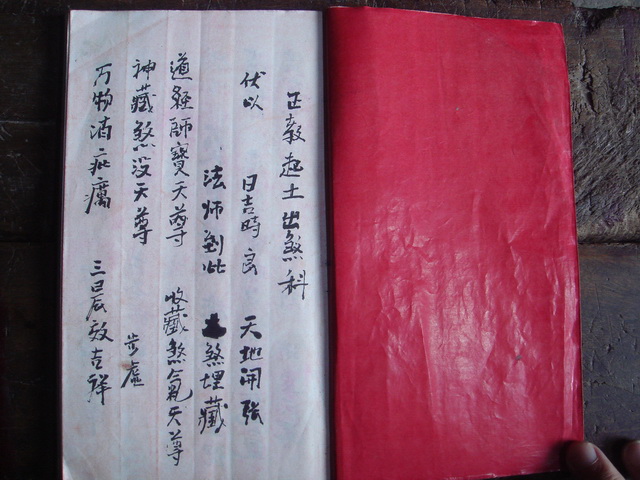 正教起土出煞科
伏以 日吉時良 天地開張
法师到此 土煞埋藏
道經師寶天尊 收藏煞氣天尊
神藏煞没天尊 步虛
万物消疵癘 三日辰效吉祥